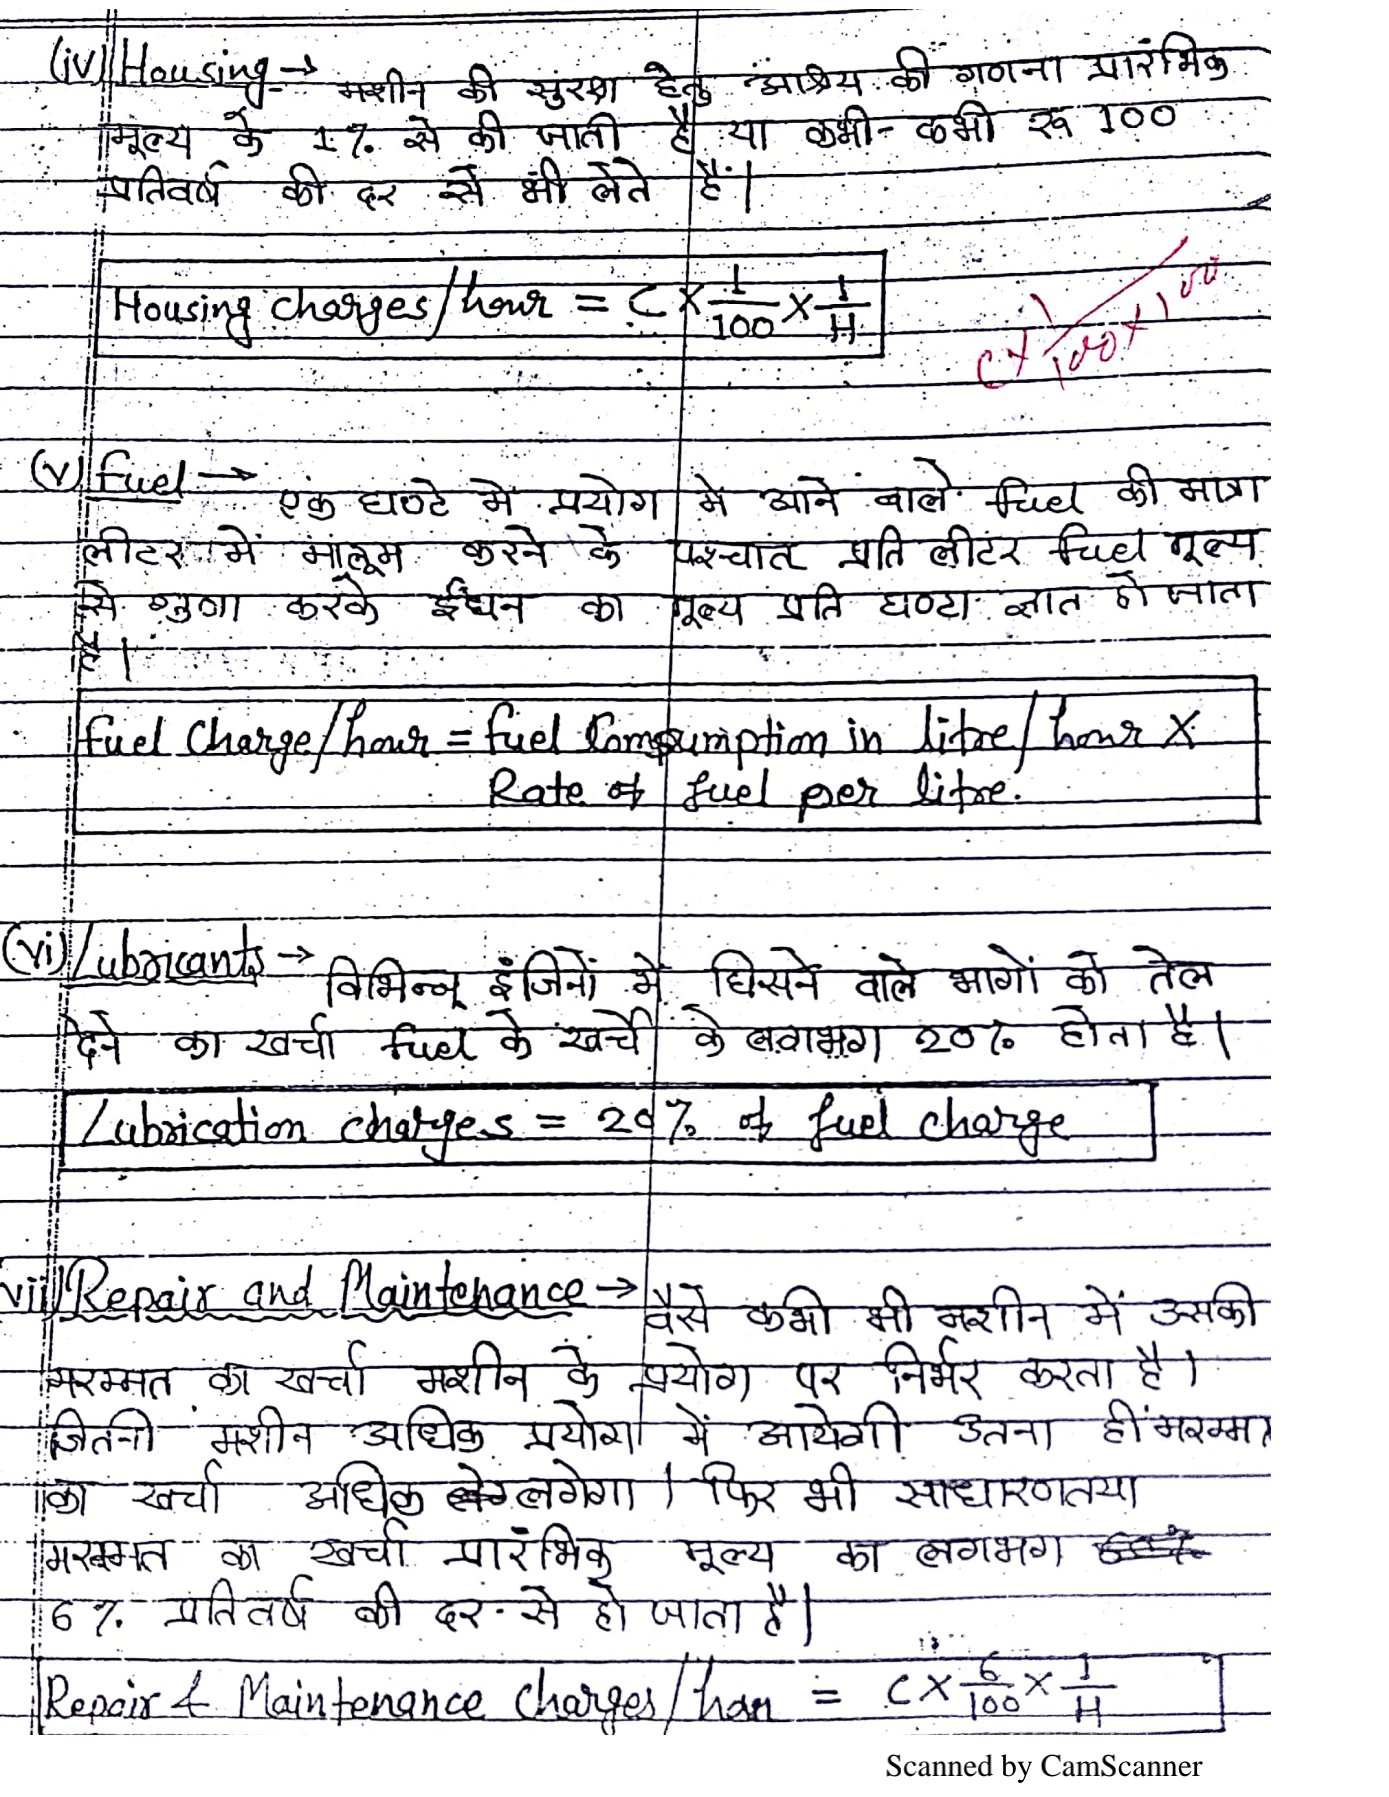 (iv) Housing → मशीन की सुरक्षा हेतु आश्रय की गणना प्रारंभिक
मूल्य के 1% से की जाती है या कभी-कभी रू 100
प्रतिवर्ष की दर से भी लेते हैं।
Housing charges/hour = C × 1/100 × 1/H
(v) fuel → एक घण्टे में प्रयोग में आने वाले fuel की मात्रा
लीटर में मालूम करने के पश्चात प्रति लीटर fuel मूल्य
से गुणा करके ईंधन का मूल्य प्रति घण्टा ज्ञात हो जाता
है।
fuel charge/hour = fuel Consumption in litre/hour ×
Rate of fuel per litre.
(vi) Lubricants → विभिन्न इंजिनों में घिसने वाले भागों को तेल
देने का खर्चा fuel के खर्चे के लगभग 20% होता है।
Lubrication charges = 20% of fuel charge
vii) Repair and Maintenance → वैसे कभी भी मशीन में उसकी
मरम्मत का खर्चा मशीन के प्रयोग पर निर्भर करता है।
जितनी मशीन अधिक प्रयोग में आयेगी उतना ही मरम्मत
का खर्चा अधिक लगेगा। फिर भी साधारणतया
मरम्मत का खर्चा प्रारंभिक मूल्य का लगभग
6% प्रतिवर्ष की दर से हो जाता है।
Repair & Maintenance charges/hour = C × 6/100 × 1/H
Scanned by CamScanner